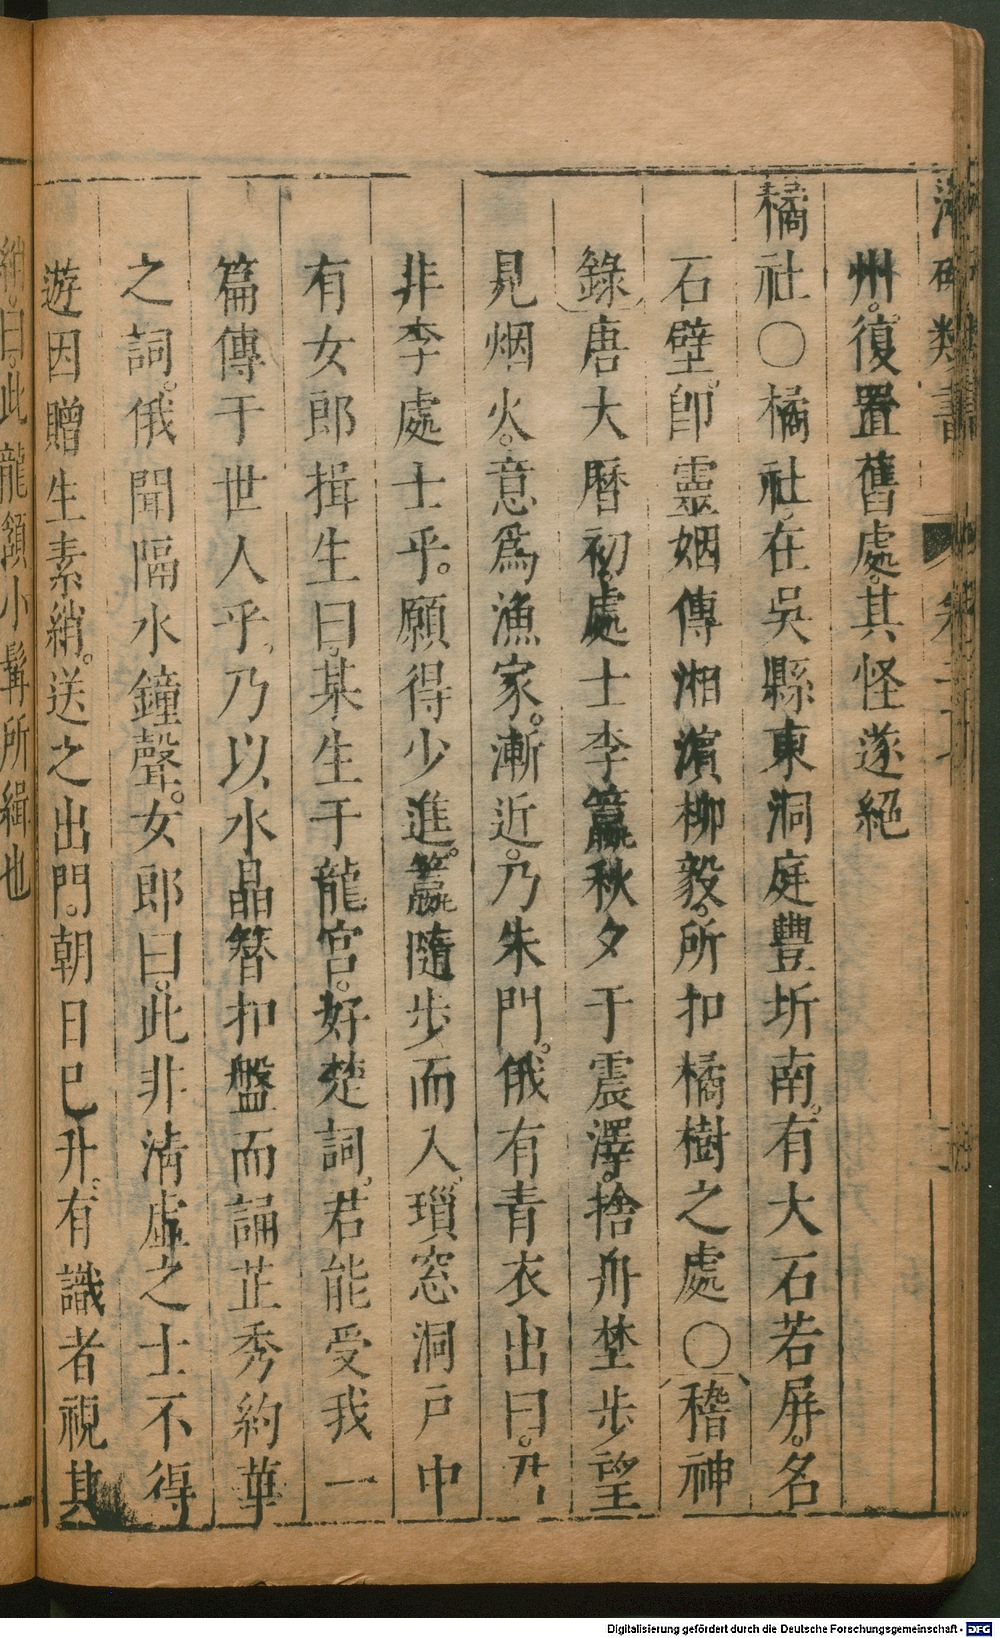 州。復置舊處。其怪遂絕
橘社〇橘社在吳縣東洞庭豐圻南。有大石若屏。名
石壁。卽靈姻傳湘濱柳毅。所扣橘樹之處〇稽神
錄唐大曆初。處士李籯秋夕于震澤。捨舟埜步望
見烟火。意爲漁家。漸近。乃朱門。俄有青衣出曰。
非李處士乎。願得少進。籯隨步而入。瑣窓洞戸中
有女郎揖生曰。某生于龍宮。好楚詞。君能受我一
篇傳于世人乎。乃以水晶簪扣盤而誦芷秀約華
之詞。俄聞隔水鐘聲。女郎曰。此非淸虛之士不得
遊因贈生素綃。送之出門。朝日已升。有識者視其
綃曰。此龍頷小髯所緝也
類書
Digitalisierung gefördert durch die Deutsche Forschungsgemeinschaft - DFG